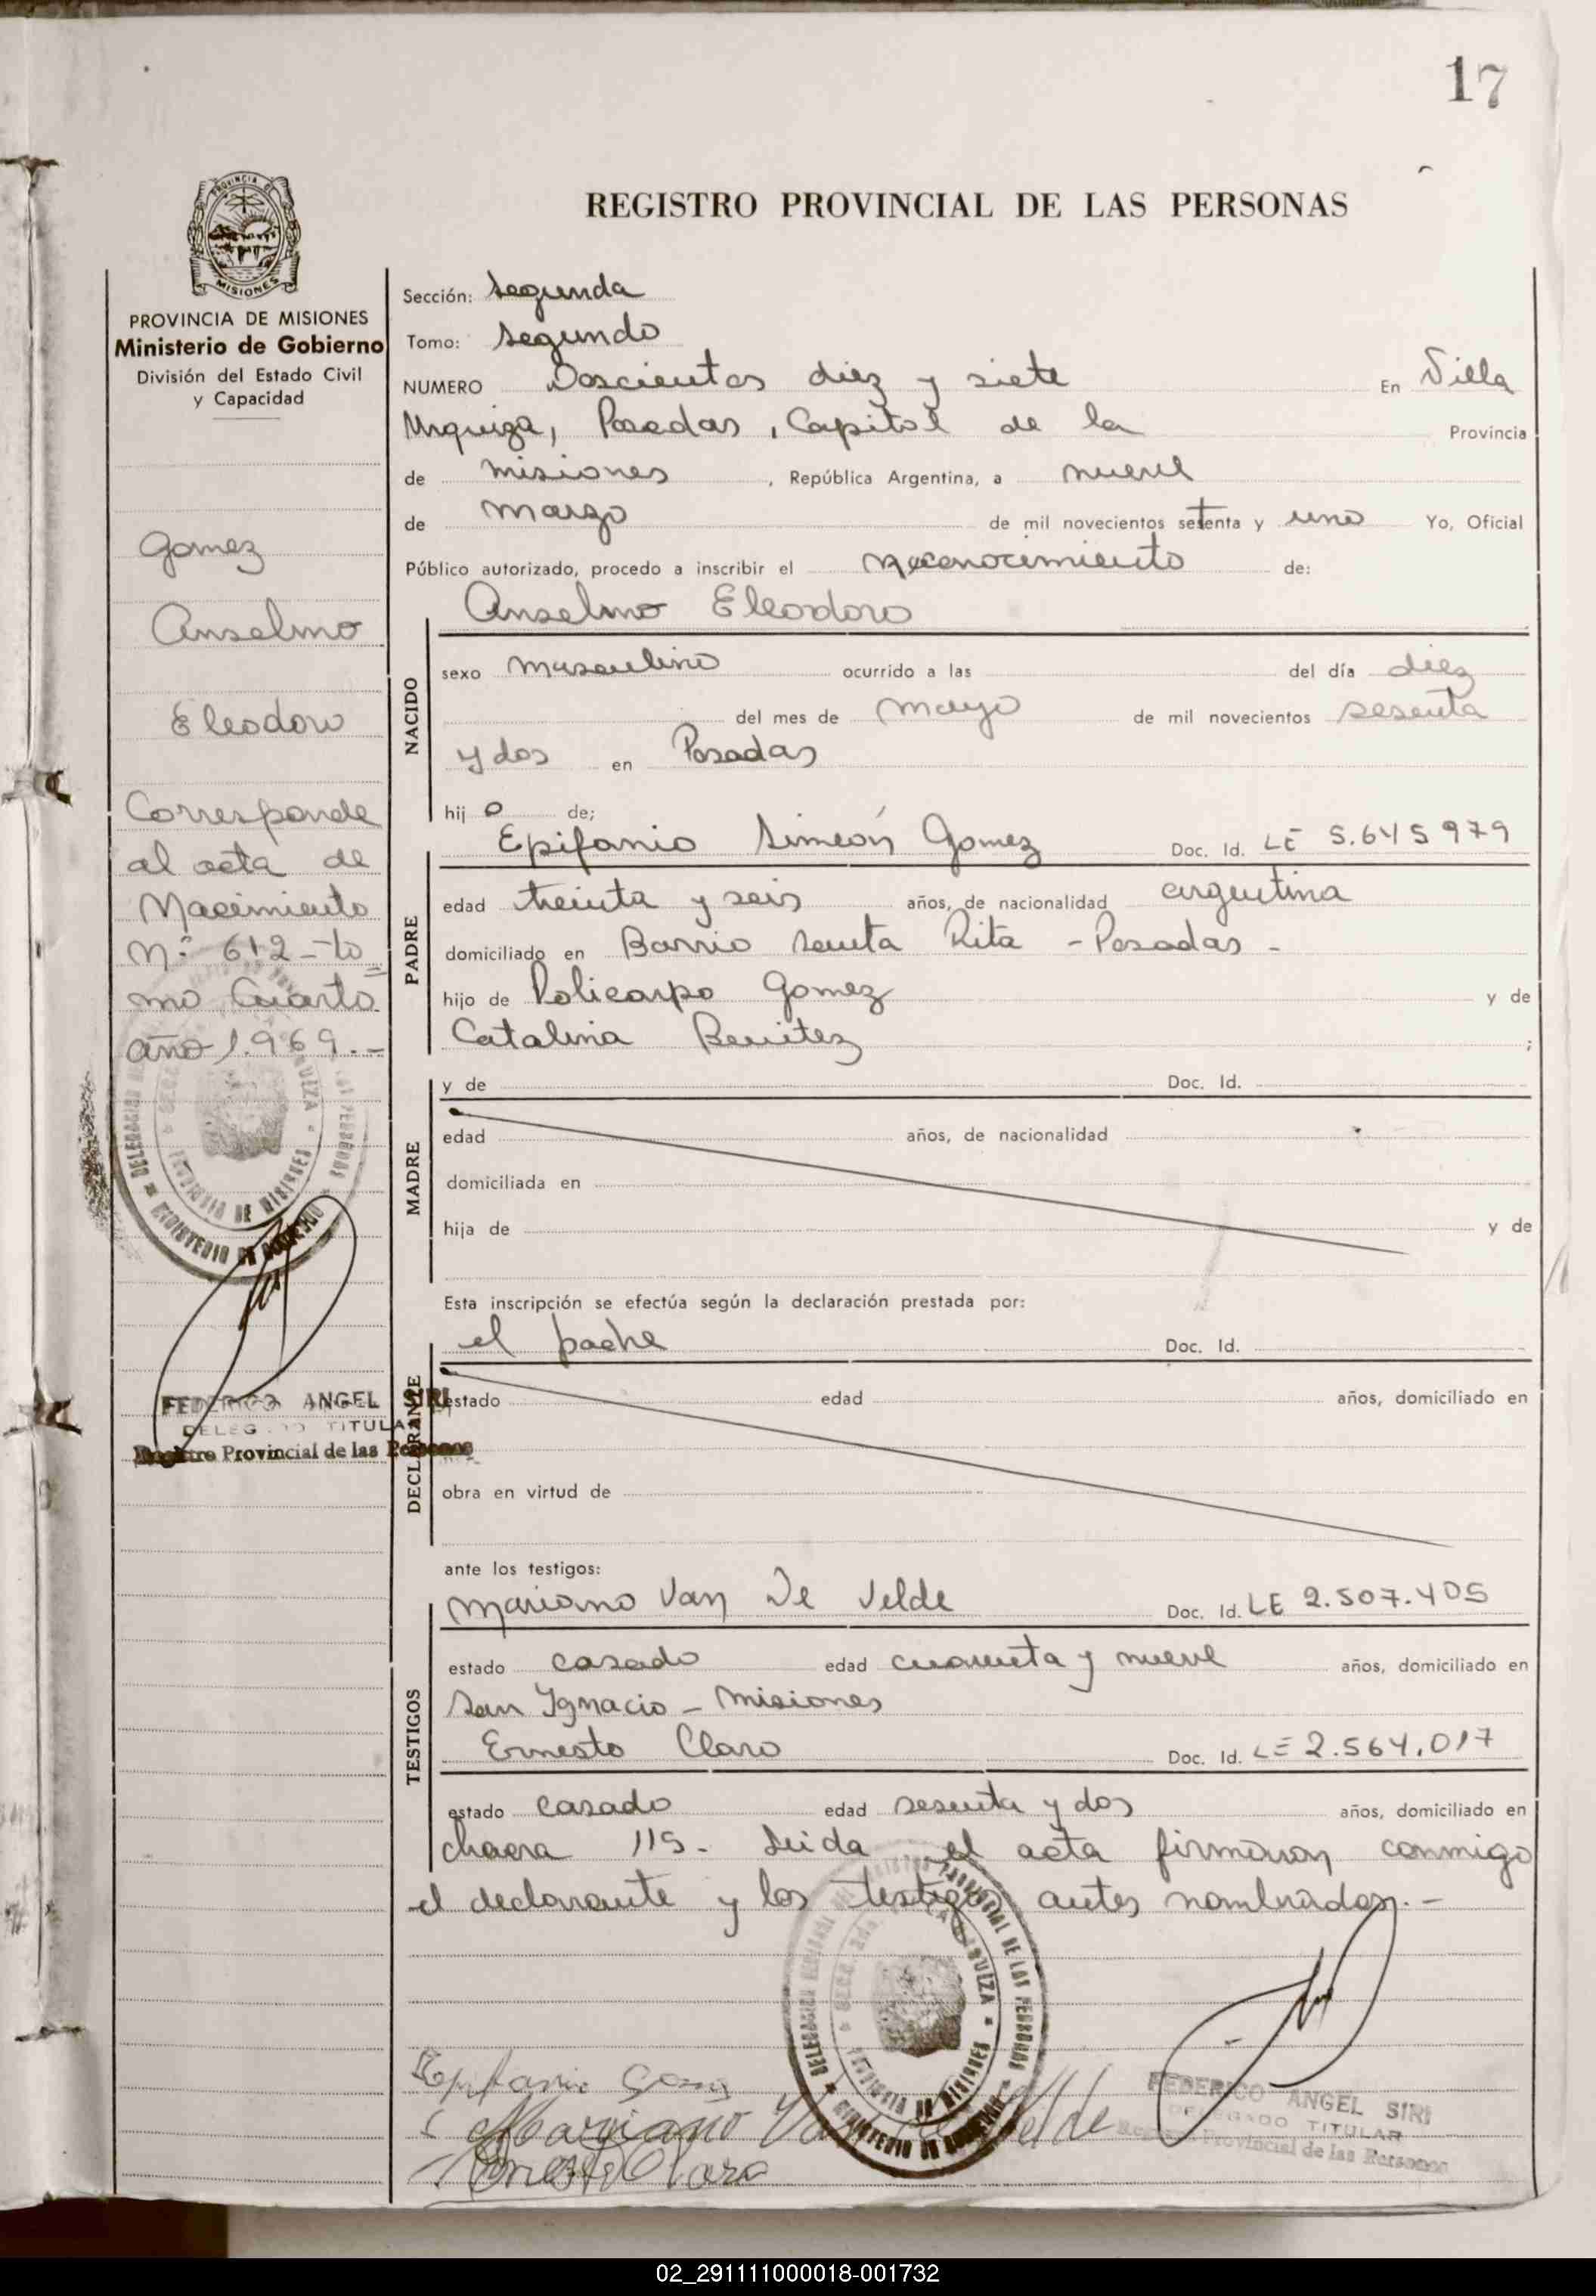 17
PROVINCIA DE
MISIONES
REGISTRO PROVINCIAL DE LAS PERSONAS
PROVINCIA DE MISIONES
Ministerio de Gobierno
División del Estado Civil
y Capacidad
Gomez
Anselmo
Eleodoro
Corresponde
al acta de
Nacimiento
Nº 612 - to=
mo Cuarto
año 1.969.-
FEDERICO ANGEL SIRI
TITULAR
Registro Provincial de las Personas
Sección: segunda
Tomo: segundo
NUMERO Doscientos diez y siete En Villa
Urquiza, Posadas, Capital de la Provincia
de misiones, República Argentina, a nueve
de marzo de mil novecientos setenta y uno Yo, Oficial
Público autorizado, procedo a inscribir el reconocimiento de:
Anselmo Eleodoro
NACIDO
sexo masculino ocurrido a las del día diez
del mes de mayo de mil novecientos sesenta
y dos en Posadas
hij o de;
Epifanio Simeón Gomez Doc. Id. LE 5.645979
PADRE
edad treinta y seis años, de nacionalidad argentina
domiciliado en Barrio santa Rita - Posadas -
hijo de Policarpo Gomez y de
Catalina Benitez ;
MADRE
y de Doc. Id.
edad años, de nacionalidad
domiciliada en
hija de y de
Esta inscripción se efectúa según la declaración prestada por:
el padre Doc. Id.
DECLARANTE
estado edad años, domiciliado en
obra en virtud de
ante los testigos:
Mariano Van De Velde Doc. Id. LE 2.507.405
TESTIGOS
estado casado edad cuarenta y nueve años, domiciliado en
San Ignacio - Misiones
Ernesto Claro Doc. Id. LE 2.564.017
estado casado edad sesenta y dos años, domiciliado en
chacra 115. Leida el acta firmaron conmigo
el declarante y los testigos antes nombrados.-
MINISTERIO DE GOBIERNO
PROVINCIA DE MISIONES
Epifanio Gomez
Mariano Van De Velde
Ernesto Claro
FEDERICO ANGEL SIRI
DELEGADO TITULAR
Registro Provincial de las Personas
02_291111000018-001732